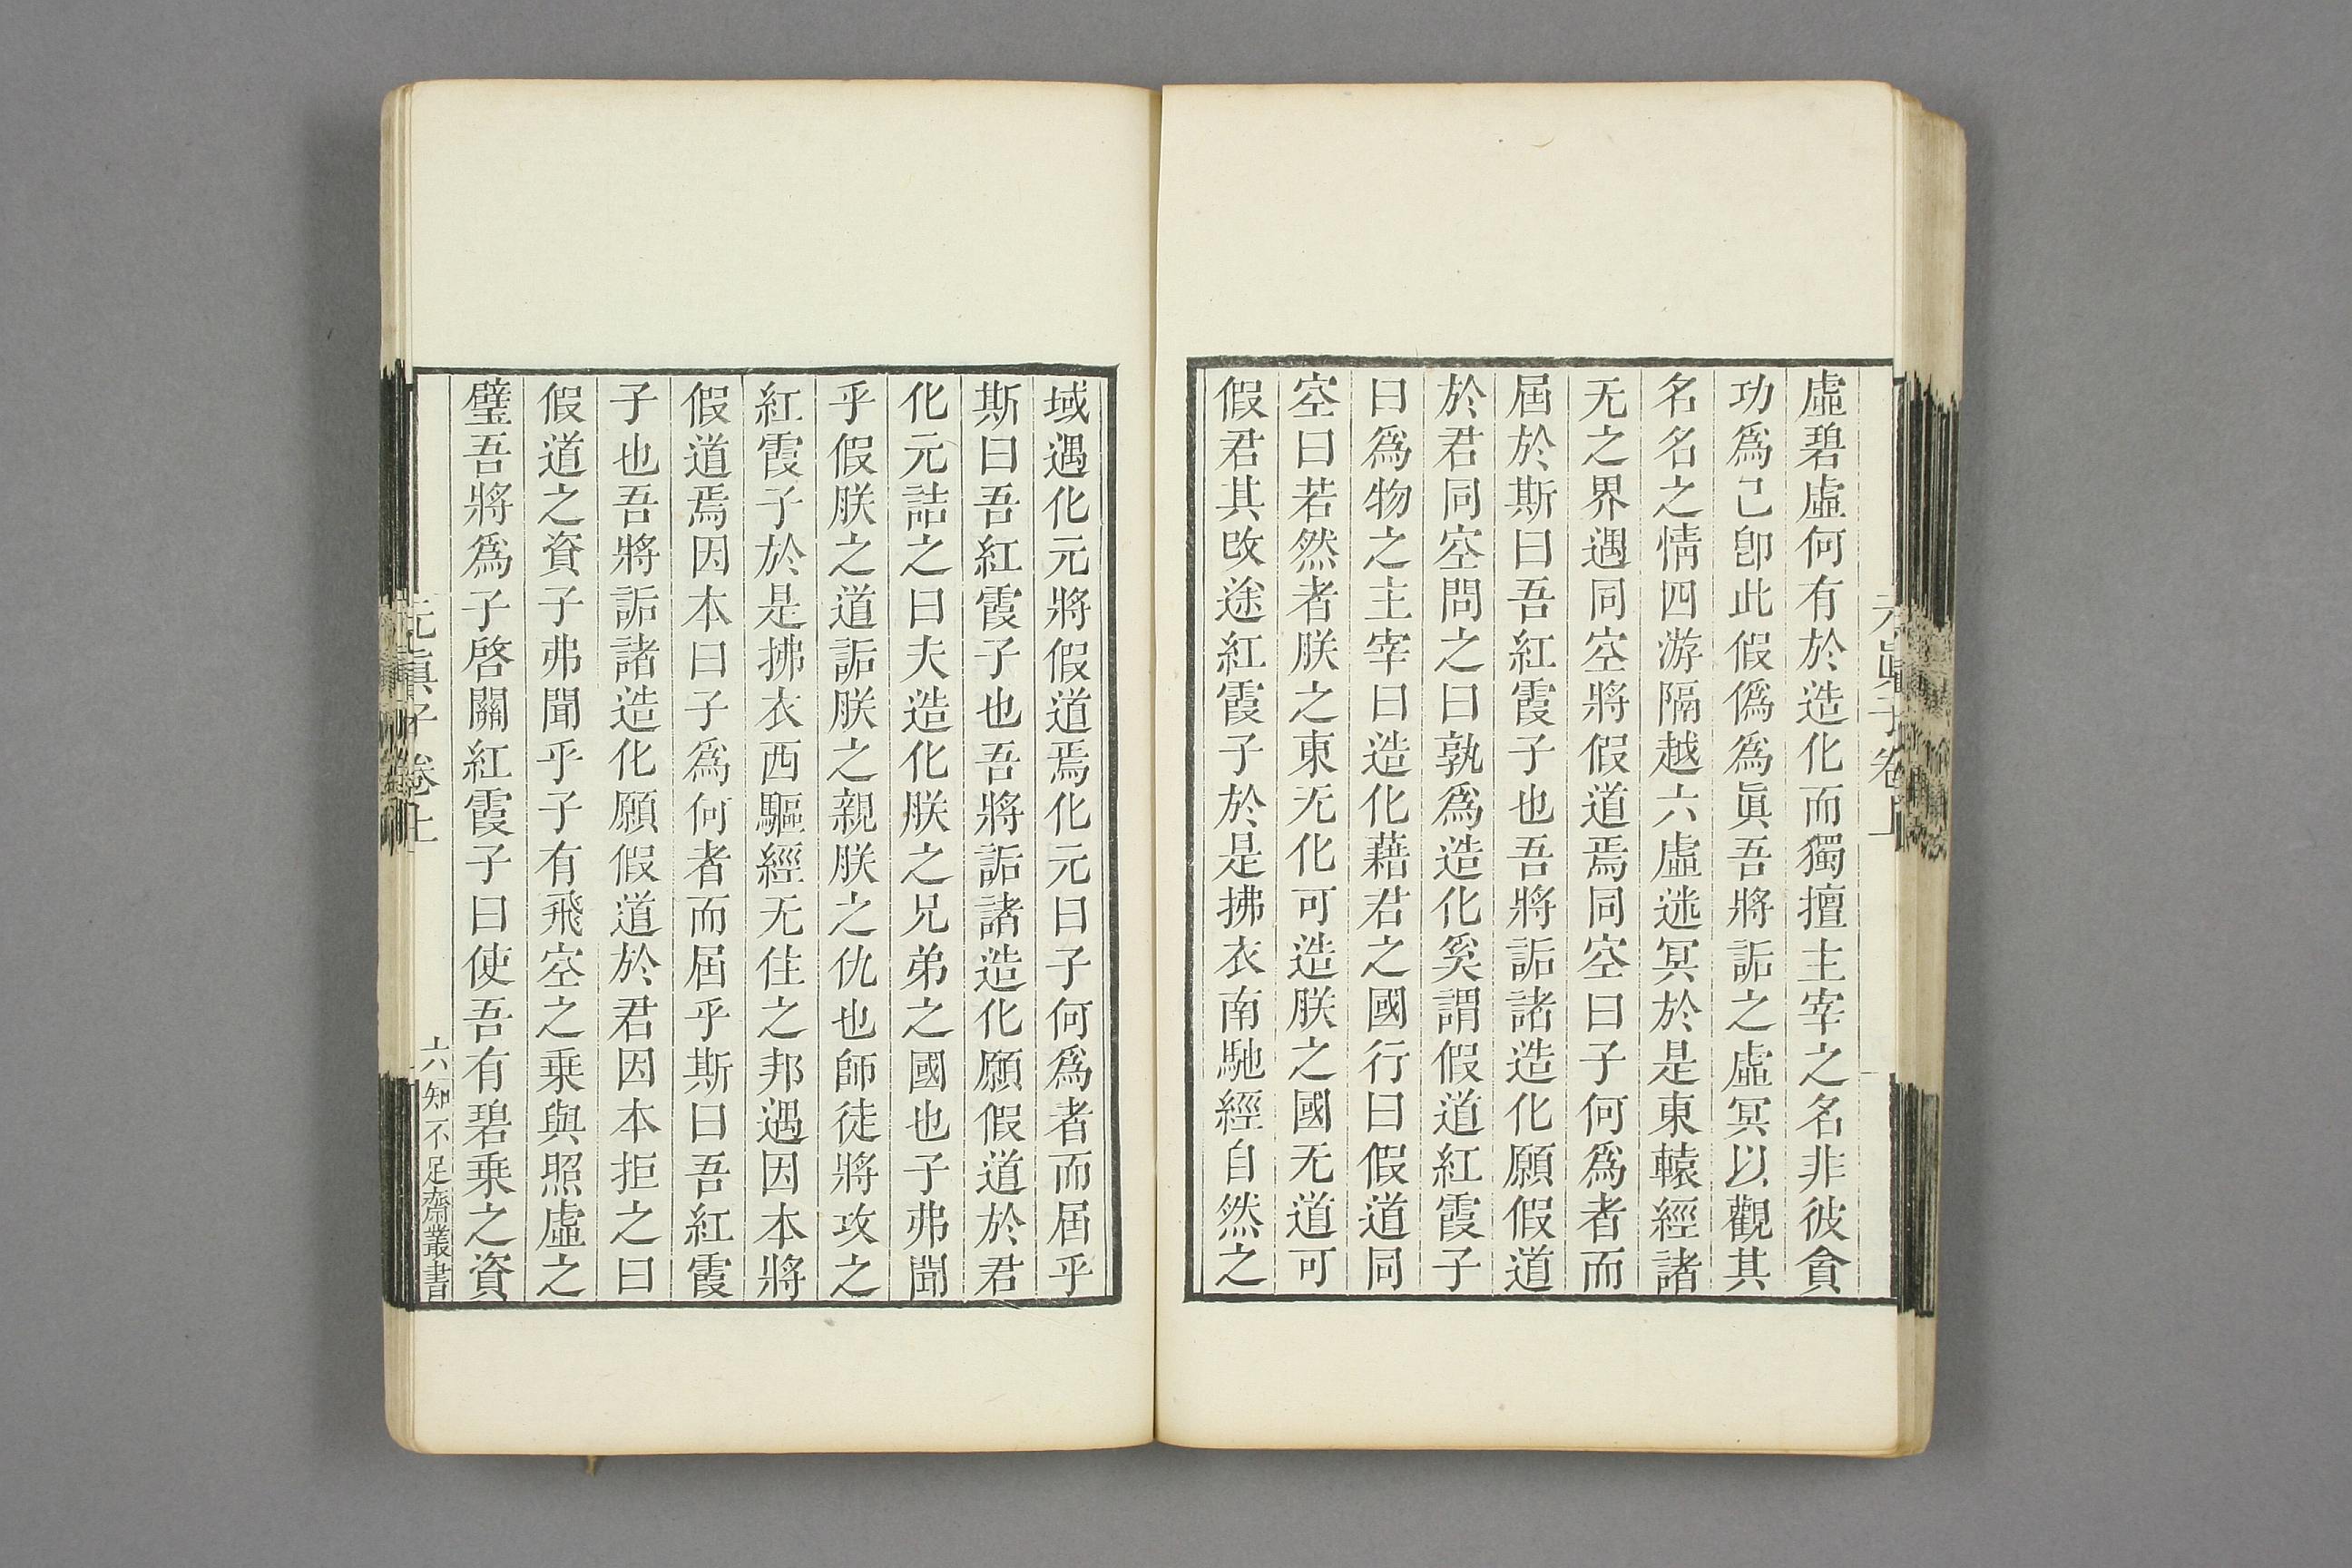 虛碧虛何有於造化而獨擅主宰之名非彼貪
功爲己卽此假僞爲眞吾將詬之虛冥以觀其
名名之情四游隔越六虛迷冥於是東轅經諸
无之界遇同空將假道焉同空曰子何爲者而
屆於斯曰吾紅霞子也吾將詬諸造化願假道
於君同空問之曰孰爲造化奚謂假道紅霞子
曰爲物之主宰曰造化藉君之國行曰假道同
空曰若然者朕之東无化可造朕之國无道可
假君其改途紅霞子於是拂衣南馳經自然之
域遇化元將假道焉化元曰子何爲者而屆乎
斯曰吾紅霞子也吾將詬諸造化願假道於君
化元詰之曰夫造化朕之兄弟之國也子弗聞
乎假朕之道詬朕之親朕之仇也師徒將攻之
紅霞子於是拂衣西驅經无住之邦遇因本將
假道焉因本曰子爲何者而屆乎斯曰吾紅霞
子也吾將詬諸造化願假道於君因本拒之曰
假道之資子弗聞乎子有飛空之乘與照虛之
璧吾將爲子啓關紅霞子曰使吾有碧乘之資
元眞子卷上
六
知不足齋叢書